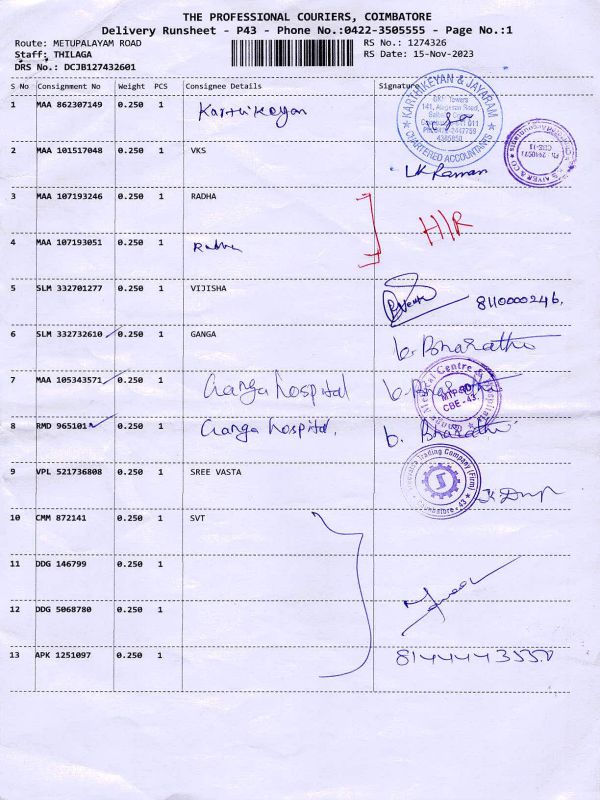 THE PROFESSIONAL COURIERS, COIMBATORE
Delivery Runsheet - P43 - Phone No.:0422-3505555 - Page No.:1
Route: METUPALAYAM ROAD RS No.: 1274326
Staff: THILAGA RS Date: 15-Nov-2023
DRS No.: DCJB127432601
S No Consignment No Weight PCS Consignee Details Signature
1 MAA 862307149 0.250 1 Karthikeyan
KARTHIKEYAN & JAYARAM
CHARTERED ACCOUNTANTS
2 MAA 101517048 0.250 1 VKS
LK Raman
3 MAA 107193246 0.250 1 RADHA
H/R
4 MAA 107193051 0.250 1 Radha
5 SLM 332701277 0.250 1 VIJISHA
8110000246.
6 SLM 332732610 0.250 1 GANGA b. Bharathi
7 MAA 105343571 0.250 1 Ganga hospital b. Bharathi
Ganga Medical Centre & Hospitals
MTP RD
CBE-43.
8 RMD 965101 0.250 1 Ganga hospital. b. Bharathi
9 VPL 521736808 0.250 1 SREE VASTA
Trading Company (Firm)
Coimbatore - 43
10 CMM 872141 0.250 1 SVT
11 DDG 146799 0.250 1
12 DDG 5068780 0.250 1
13 APK 1251097 0.250 1